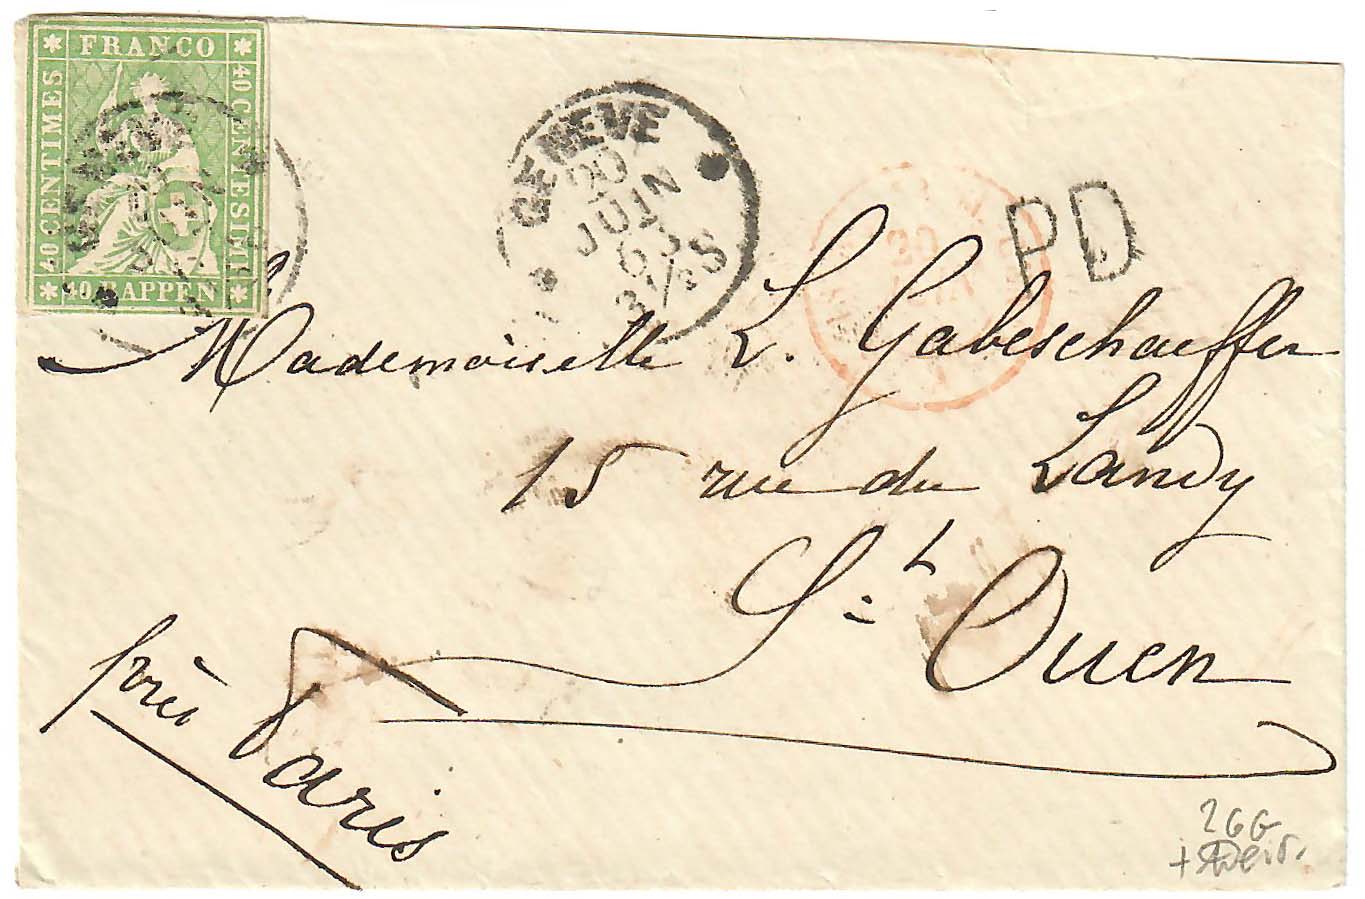 FRANCO
40 CENTIMES
40 CENTESIMI
40 RAPPEN
GENEVE
20
JUIN
63
3½S
PD
Mademoiselle L. Gabeschaeffer
15 rue du Landy
St Ouen
près Paris
26G